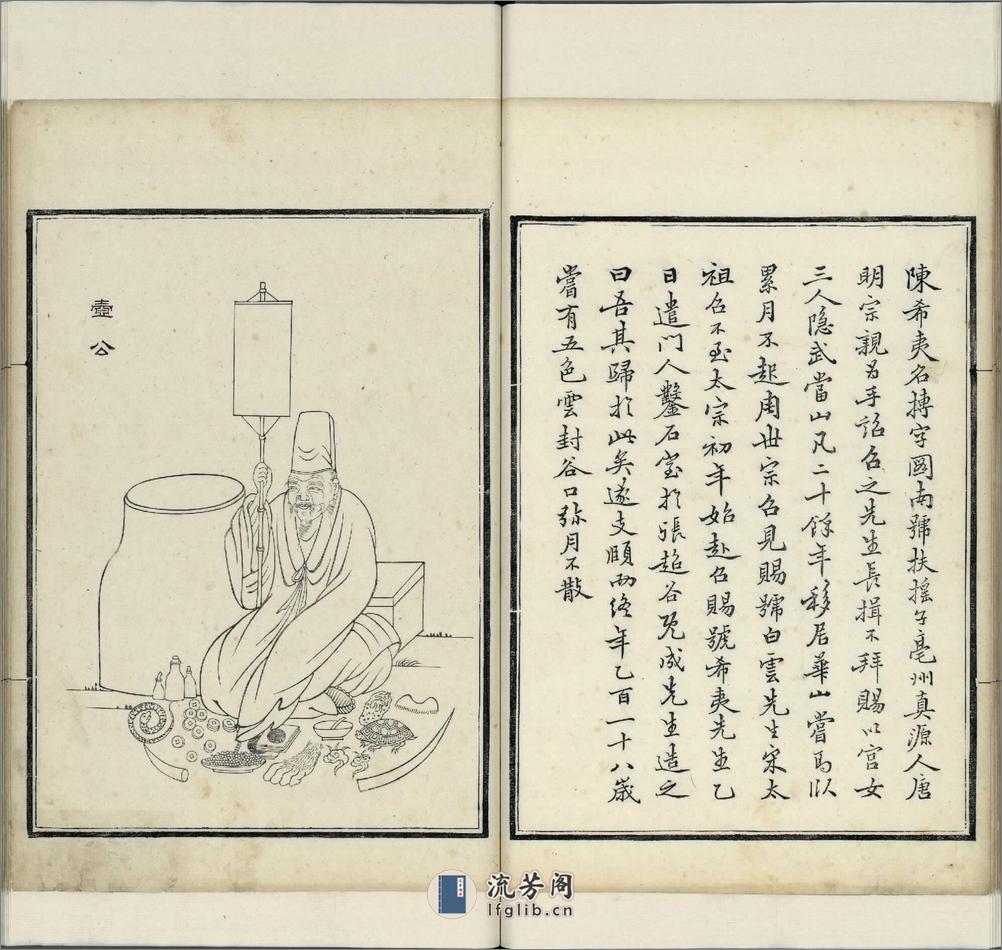 陳希夷名摶字圖南號扶摇子亳州真源人唐
明宗親為手詔召之先生長揖不拜賜以宫女
三人隐武當山凡二十餘年移居華山嘗馬臥
累月不起周世宗召見賜號白雲先生宋太
祖召不至太宗初年始赴召賜號希夷先生乙
日遣門人鑿石室於張超谷既成先生造之
曰吾其歸於此矣遂支頤而終年乙百一十八歲
嘗有五色雲封谷口弥月不散
壺公
流芳阁
lfglib.cn